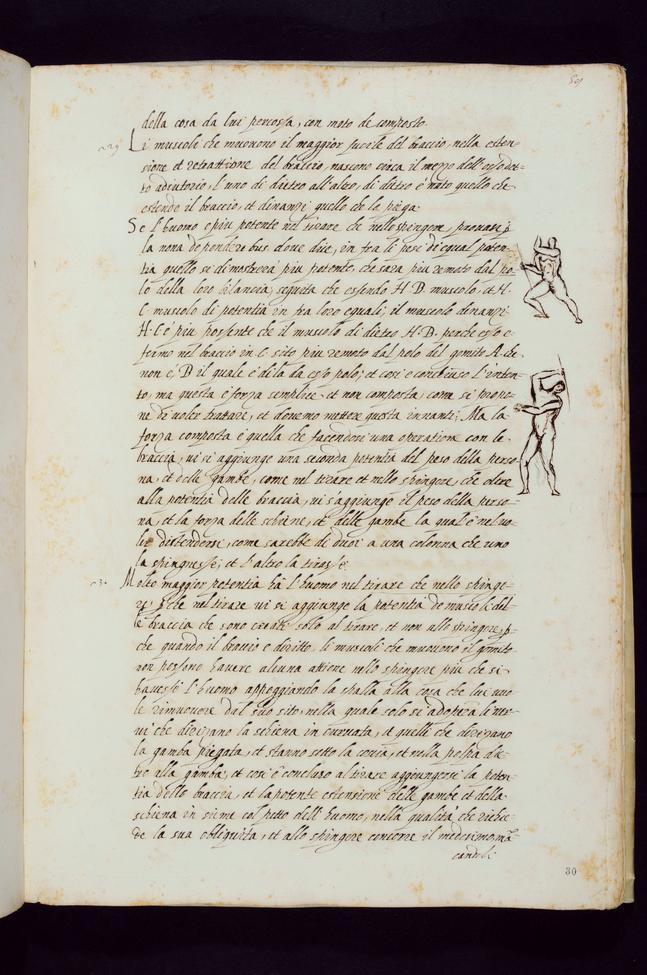 della cosa da lui percossa, con moto de composto.
Li muscoli che muovono il maggior fucile del braccio, nella esten-
sione et retrattione del braccio, nascono circa il mezo dell'osso det-
to adiutorio, l'uno di dietro all'altro, di dietro è nato quello che
estende il braccio, et dinanzi quello che lo piega.
Se l'huomo e piu potente nel tirare che nello spingere, provasi p
la nona de ponderibus dove dice, in fra le pese di equal poten-
tia quello si dimostrerà piu potente, che sara piu remoto dal po-
lo della loro bilancia, seguita che essendo H.B. muscolo, et H.
C. muscolo di potentia in fra loro equali, il muscolo dinanzi
H.C. è piu possente che il muscolo di dietro H.B. perche esso e
fermo nel braccio in C. sito piu remoto dal polo del gomito A. che
non e, B il quale è di la da esso polo, et cosi e concluso l'inten-
to, ma questa e forza semplice, et non composta, come si propo-
ne di voler trattare, et dovemo mettere questa innanti; Ma la
forza composta è quella che facendosi una operatione con le
braccia, vi si aggiunge una seconda potentia del peso della perso-
na, et delle gambe, come nel tirare et nello spingere, che oltre
alla potentia delle braccia, vi s'aggiunge il peso della perso-
na, et la forza delle schiene, et delle gambe la qual'è nel vo-
ler distendersi, come sarebbe di duoi a una colonna che uno
la spingesse, et l'altro la tirasse.
Molto maggior potentia hà l'huomo nel tirare che nello spinge-
re, p che nel tirare vi si aggiunge la potentia de muscoli del-
le braccia che sono creati solo al tirare, et non allo spingere, p
che quando il braccio e diritto, li muscoli che muovono il gomito
non possono havere alcuna attione nello spingere piu che si
havesse l'huomo appoggiando la spalla alla cosa che lui vuo-
le rimuovere dal suo sito, nella quale solo si adopera li ner-
vi che dirizano la schiena incurvata, et quelli che dirizano
la gamba piegata, et stanno sotto la coscia, et nella polpa die-
tro alla gamba, et cosi è concluso al tirare aggiungersi la poten-
tia delle braccia, et la potente estensione delle gambe et della
schiena in sieme col petto dell'huomo, nella qualità che richie-
de la sua obliquita, et allo spingere concorre il medesimo mã
candoli
30